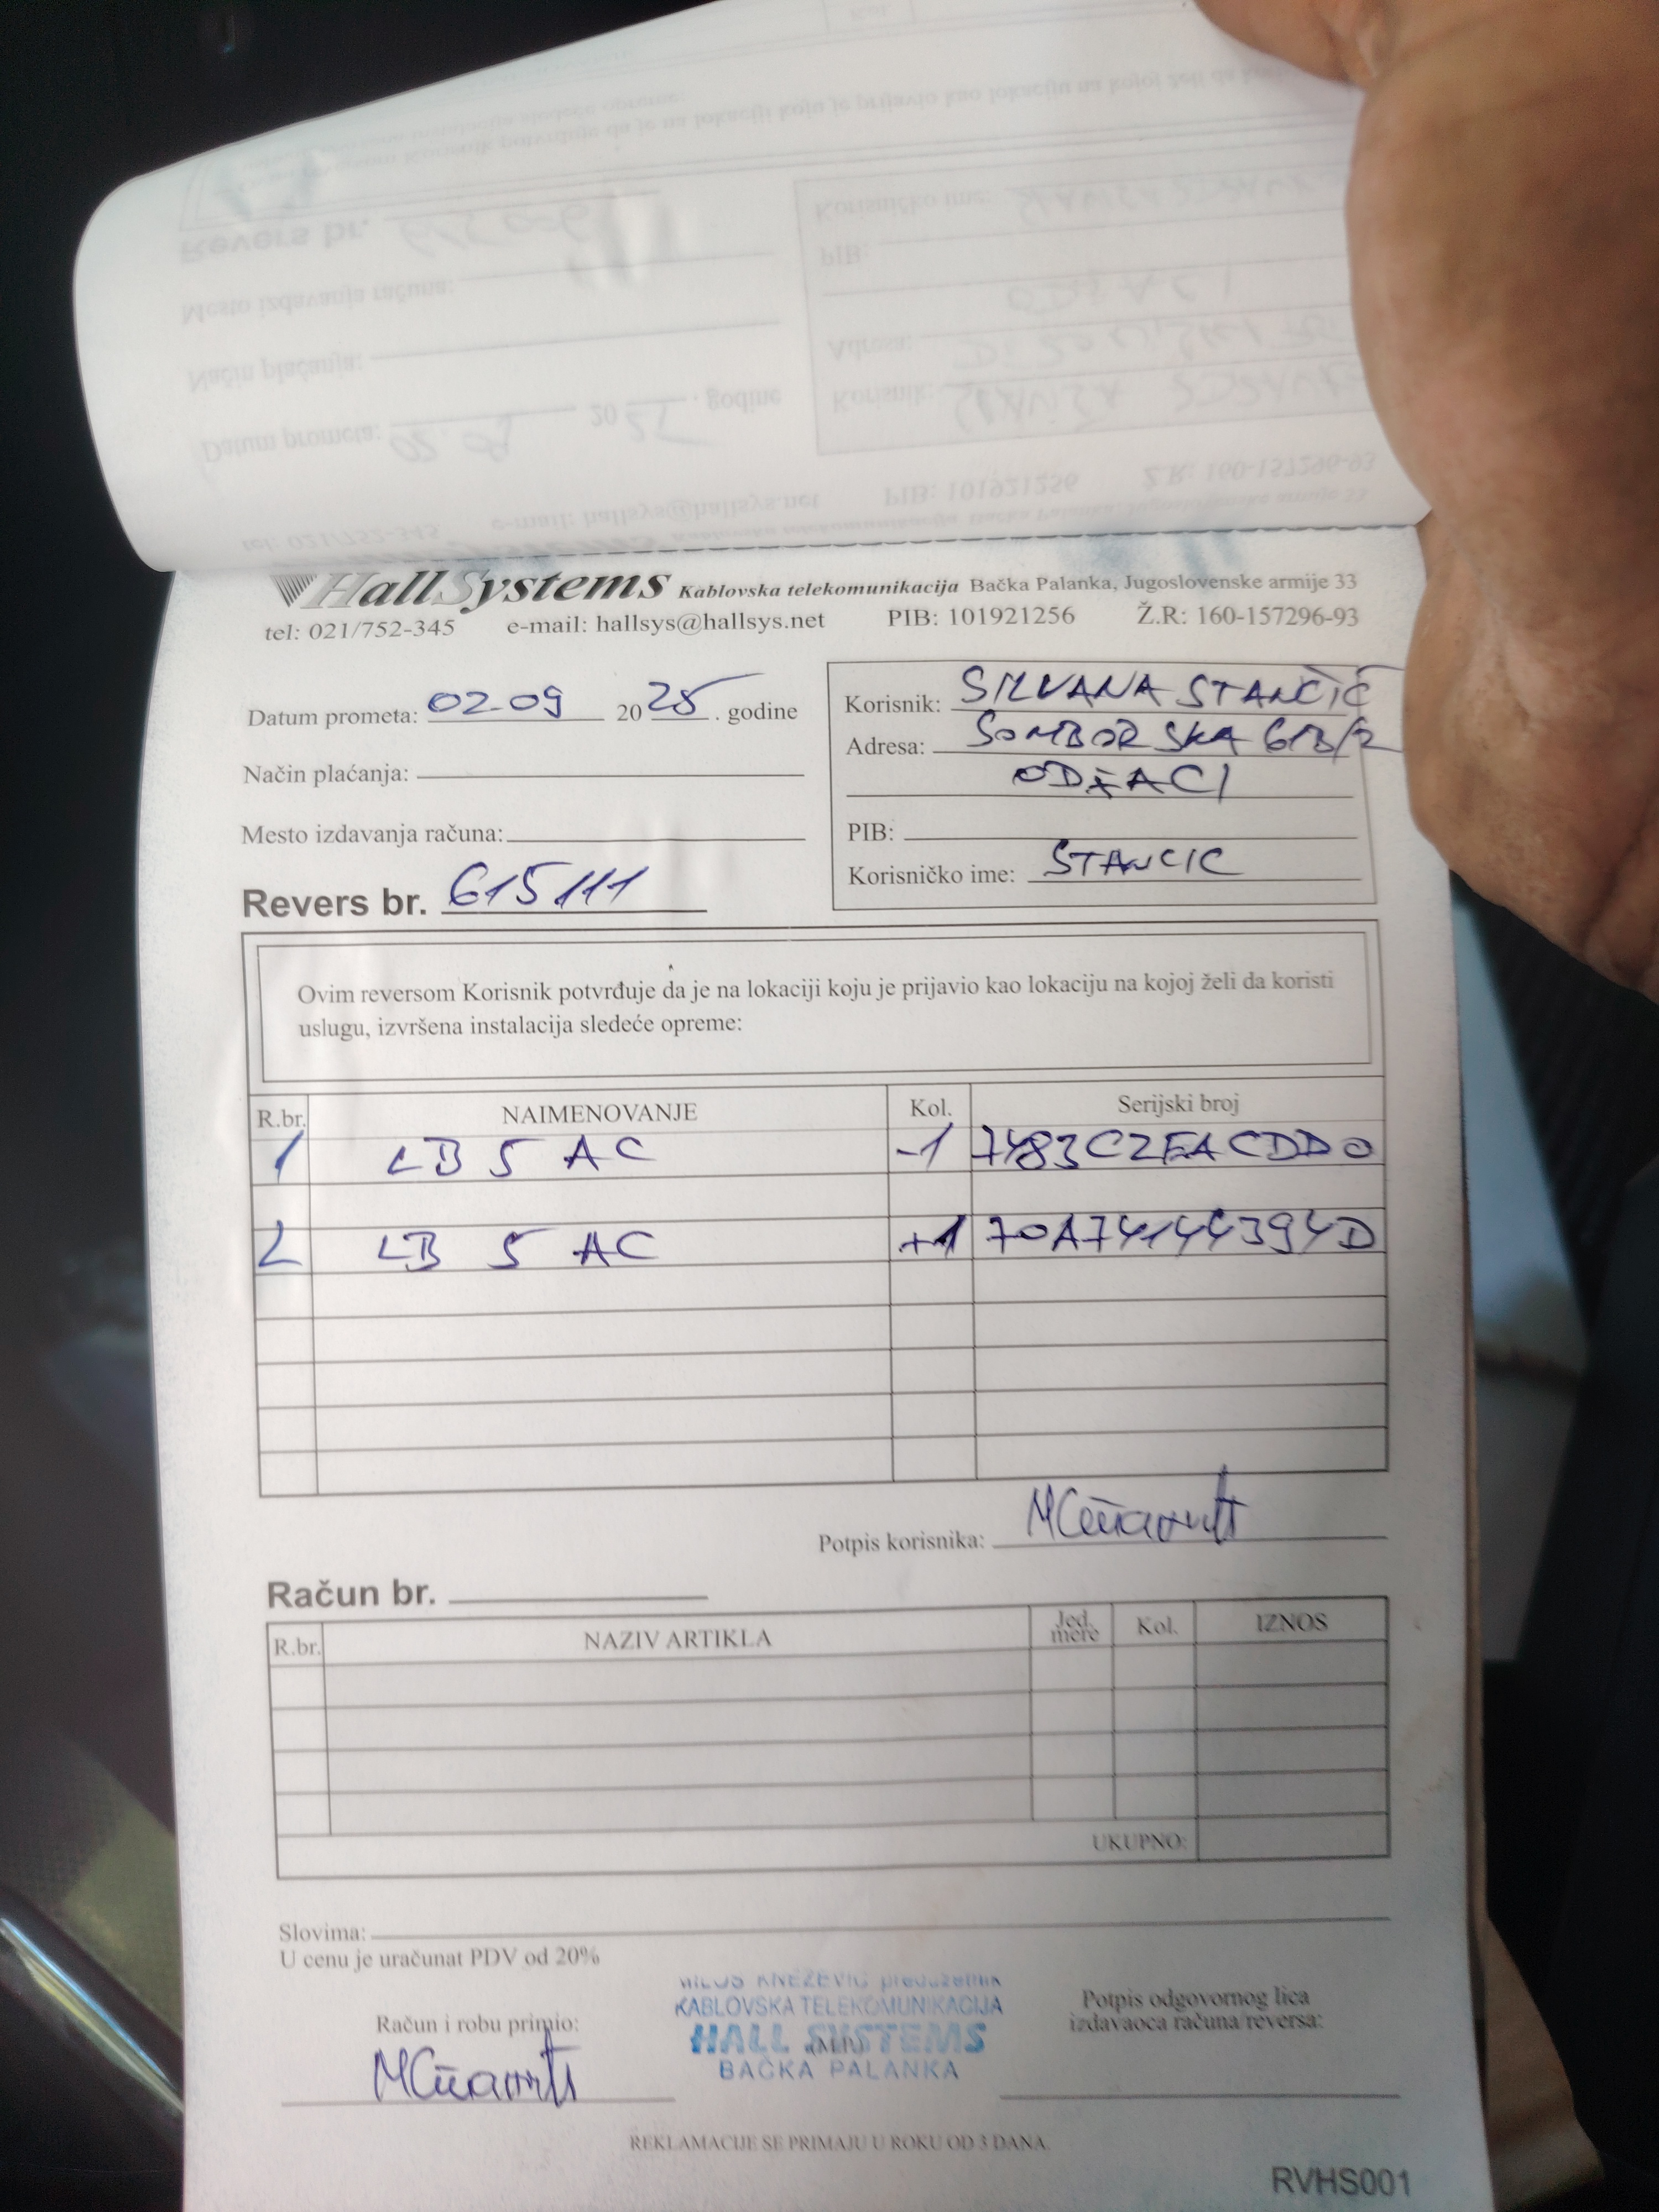 HallSystems Kablovska telekomunikacija Bačka Palanka, Jugoslovenske armije 33
tel: 021/752-345 e-mail: hallsys@hallsys.net PIB: 101921256 Ž.R: 160-157296-93
Datum prometa: 02.09 2025. godine
Način plaćanja:
Mesto izdavanja računa:
Revers br. 615111
Korisnik: SILVANA STANČIĆ
Adresa: SOMBORSKA 61B/2
ODŽACI
PIB:
Korisničko ime: STANCIC
Ovim reversom Korisnik potvrđuje da je na lokaciji koju je prijavio kao lokaciju na kojoj želi da koristi
uslugu, izvršena instalacija sledeće opreme:
R.br. NAIMENOVANJE Kol. Serijski broj
1 LB 5 AC -1 7483C2FACDD0
2 LB 5 AC +1 70A74144394D
Potpis korisnika:
Račun br.
R.br. NAZIV ARTIKLA Jed. mere Kol. IZNOS
UKUPNO:
Slovima:
U cenu je uračunat PDV od 20%
MILOŠ KNEŽEVIĆ preduzetnik
KABLOVSKA TELEKOMUNIKACIJA
HALL SYSTEMS
(M.P.)
BAČKA PALANKA
Račun i robu primio:
Potpis odgovornog lica
izdavaoca računa/reversa:
REKLAMACIJE SE PRIMAJU U ROKU OD 3 DANA.
RVHS001